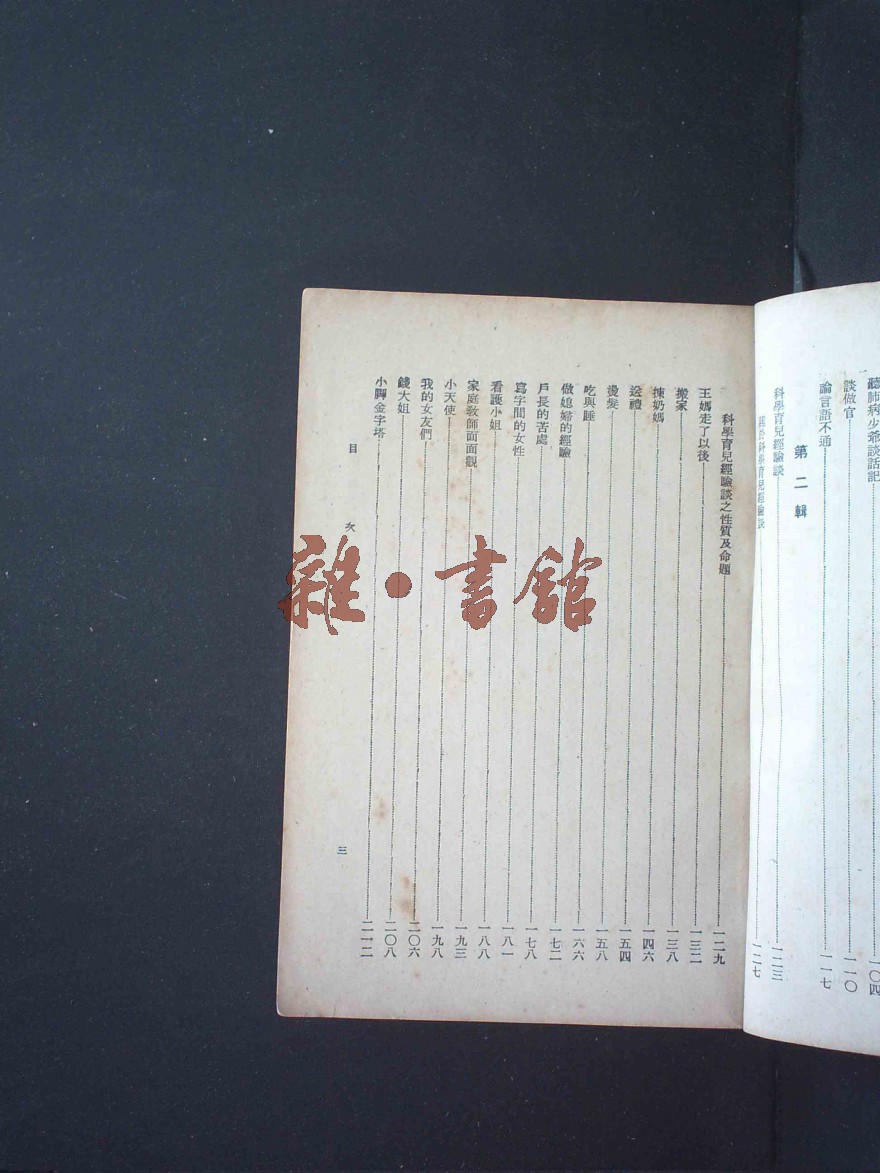 聽肺病少爺談話記……一〇四
談做官……一一〇
論言語不通……一一七
第二輯
科學育兒經驗談……一二三
關於科學育兒經驗談……一二七
科學育兒經驗談之性質及命題……一二九
王媽走了以後……一三二
搬家……一三八
揀奶媽……一四六
送禮……一五四
燙髮……一五八
吃與睡……一六六
做媳婦的經驗……一七二
戶長的苦處……一七八
寫字間的女性……一八一
看護小姐……一八八
家庭教師面面觀……一九三
小天使……一九八
我的女友們……二〇六
錢大姐……二〇八
小腳金字塔……二一二
目次
三
雜·書館